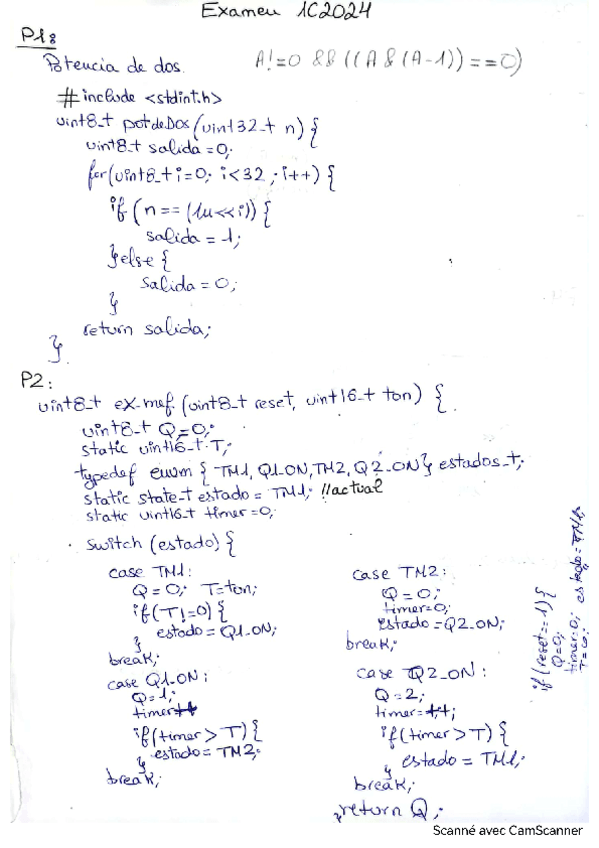 Examen 1C2024
P1:
Potencia de dos. A!=0 && ((A & (A-1)) ==0)
#include <stdint.h>
uint8_t potdeDos(uint32_t n) {
uint8_t salida = 0;
for(uint8_t i=0; i<32 ; i++) {
if (n == (1u<<i)) {
salida = 1;
}else {
salida = 0;
}
return salida;
}
P2:
uint8_t ex_mef (uint8_t reset, uint16_t ton) {
uint8_t Q=0;
static uint16_t T;
typedef enum { TM1, Q1_ON, TM2, Q2_ON} estados_t;
static state_t estado = TM1; //actual
static uint16_t timer=0;
switch (estado) {
case TM1:
Q = 0; T=ton;
if(T!=0) {
estado = Q1_ON;
}
break;
case Q1_ON:
Q=1;
timer++
if(timer > T) {
estado = TM2;
}
break;
case TM2:
Q = 0;
timer=0;
estado =Q2_ON;
break;
case Q2_ON:
Q=2;
timer=++;
if(timer>T) {
estado = TM1;
}
break;
}
return Q;
if (reset==1) {
Q=0;
timer=0; estado=TM1;
Scanné avec CamScanner